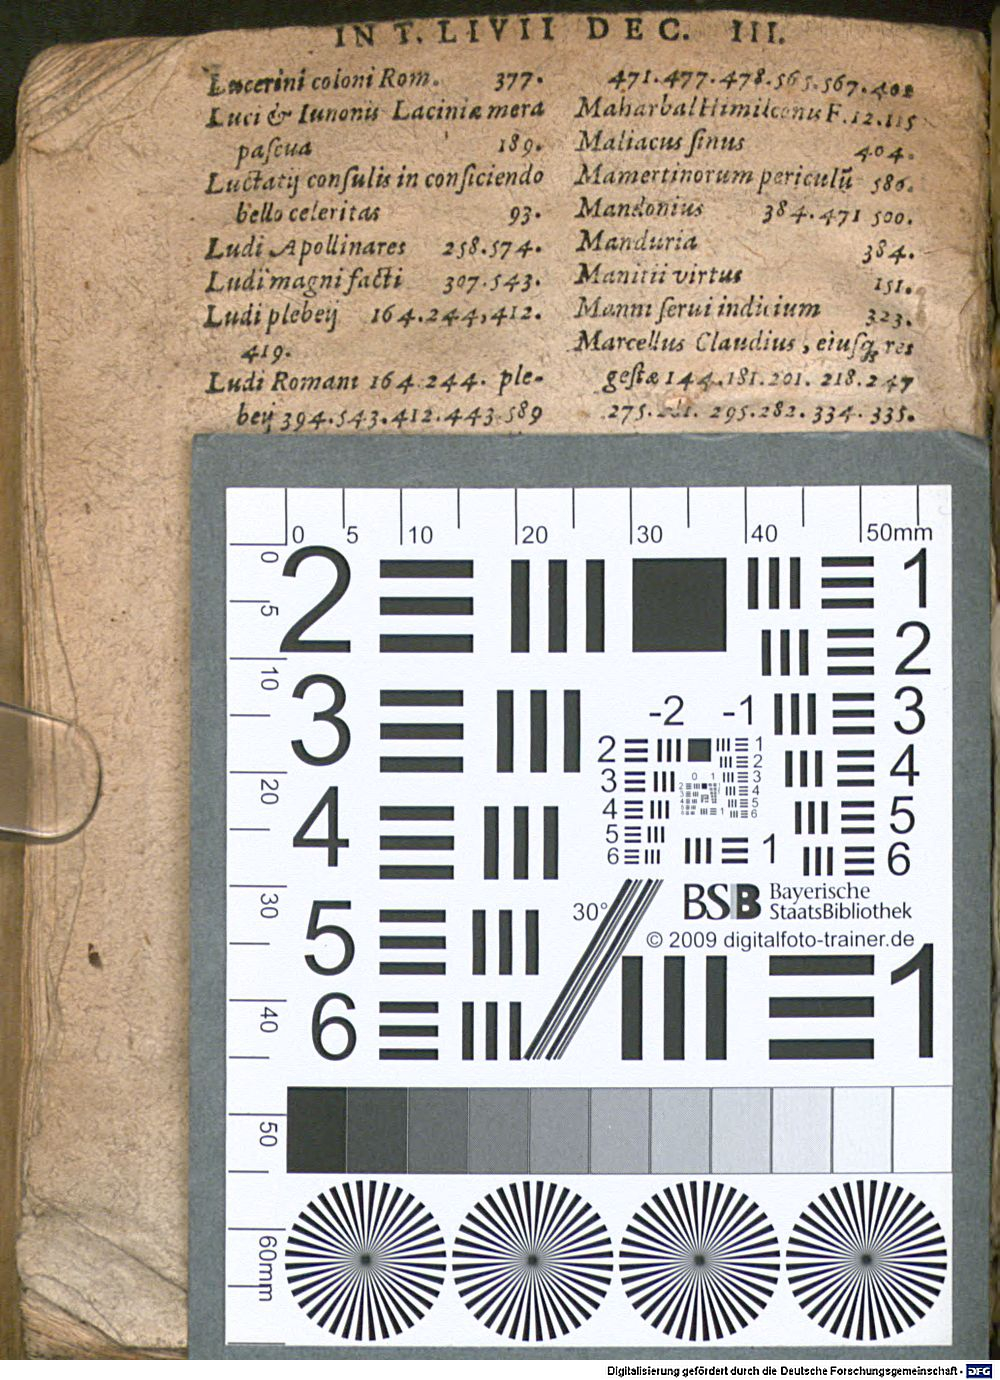 IN T. LIVII DEC. III.
Lucerini coloni Rom. 377.
Luci & Iunonis Laciniæ mera
pascua 189.
Luctatij consulis in conficiendo
bello celeritas 93.
Ludi Apollinares 258.574.
Ludi magni facti 307.543.
Ludi plebeij 164.244,412.
419.
Ludi Romani 164.244. ple-
beij 394.543.412.443.589
471.477.478.565.567.402
Maharbal Himilconis F.12.115
Maliacus sinus 404.
Mamertinorum periculũ 586.
Mandonius 384.471 500.
Manduria 384.
Manitii virtus 151.
Manni serui indicium 323.
Marcellus Claudius, eiusq; res
gestæ 144.181.201. 218.247
275. 295.282. 334. 335.
0 5 10 20 30 40 50mm
0 5 10 20 30 40 50 60mm
2 1
2
3 3
4 4
5 5
6 6
-2 -1
2 1
3 2
4 3
5 4
6 5
6
0 1
1
1
30°
BSB Bayerische
StaatsBibliothek
© 2009 digitalfoto-trainer.de
1
Digitalisierung gefördert durch die Deutsche Forschungsgemeinschaft - DFG